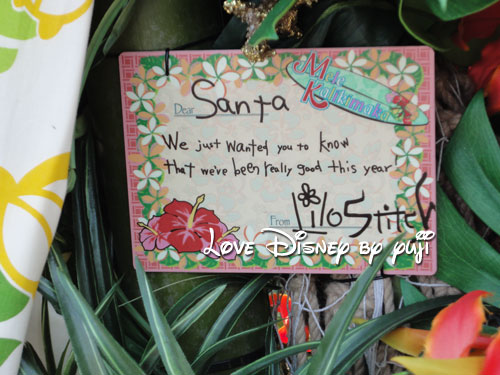 Mele
Kalikimaka
Dear Santa
We just wanted you to know
that we've been really good this year
From Lilo Stitch
Love Disney by yuji